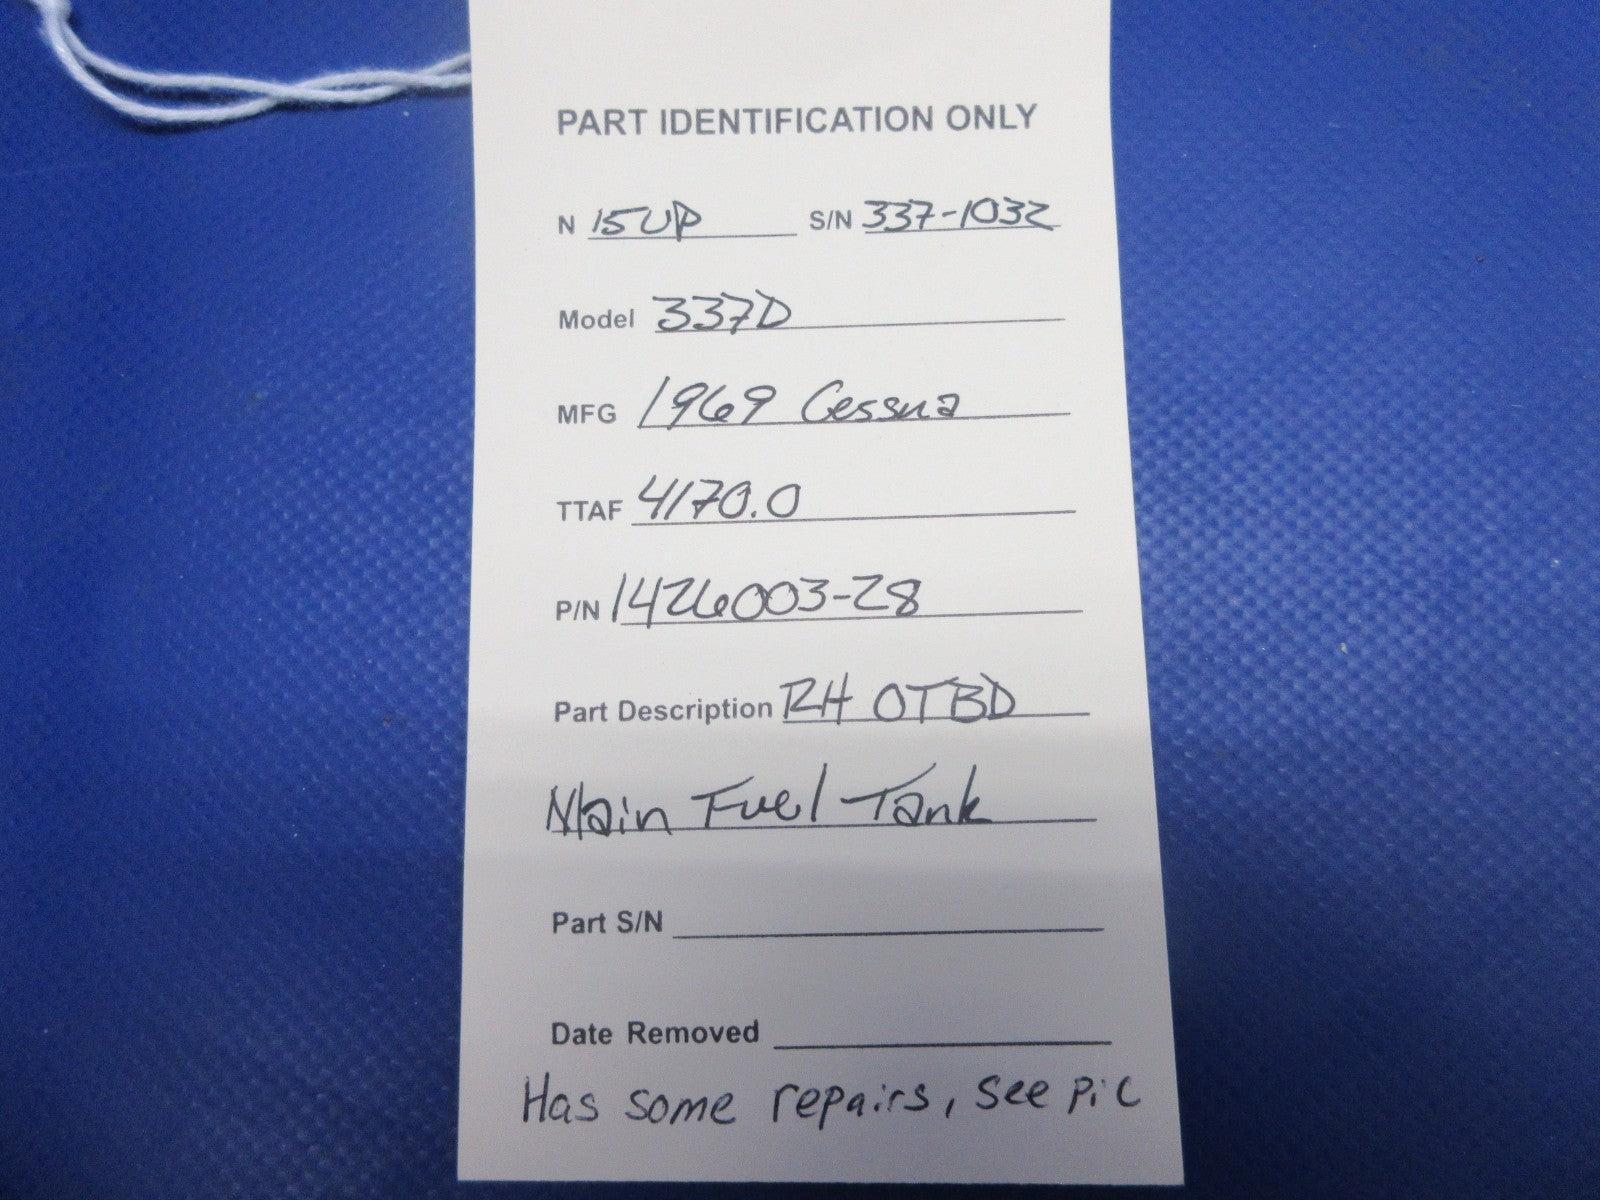 PART IDENTIFICATION ONLY
N 15UP S/N 337-1032
Model 337D
MFG 1969 Cessna
TTAF 4170.0
P/N 1426003-28
Part Description RH OTBD
Main Fuel Tank
Part S/N
Date Removed
Has some repairs, see pic